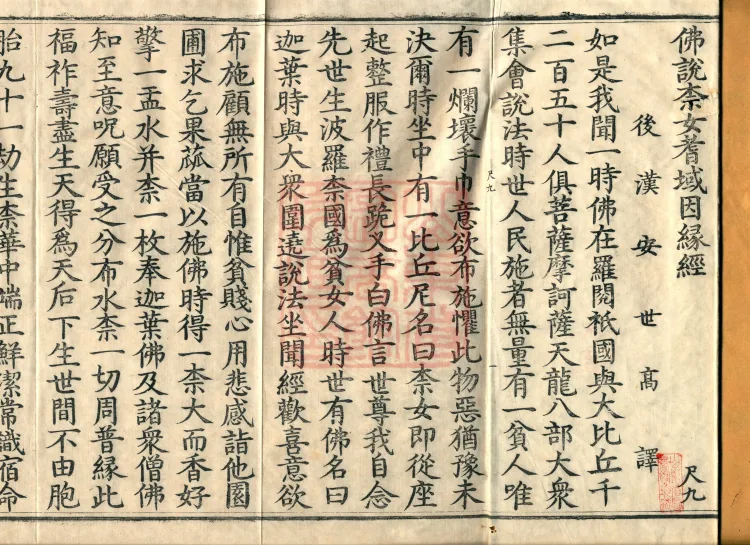 佛說柰女耆域因緣經　尺九
後漢安世高譯
如是我聞一時佛在羅閱祇國與大比丘千
二百五十人俱菩薩摩訶薩天龍八部大眾
集會說法時世人民施者無量有一貧人唯
尺九
有一爛壞手巾意欲布施懼此物惡猶豫未
決爾時坐中有一比丘尼名曰柰女即從座
起整服作禮長跪叉手白佛言世尊我自念
先世生波羅柰國為貧女人時世有佛名曰
迦葉時與大眾圍遶說法坐聞經歡喜意欲
布施顧無所有自惟貧賤心用悲感詣他園
圃求乞果蓏當以施佛時得一柰大而香好
擎一盂水并柰一枚奉迦葉佛及諸眾僧佛
知至意呪願受之分布水柰一切周普緣此
福祚壽盡生天得為天后下生世間不由胞
胎九十一劫生柰華中端正鮮潔常識宿命